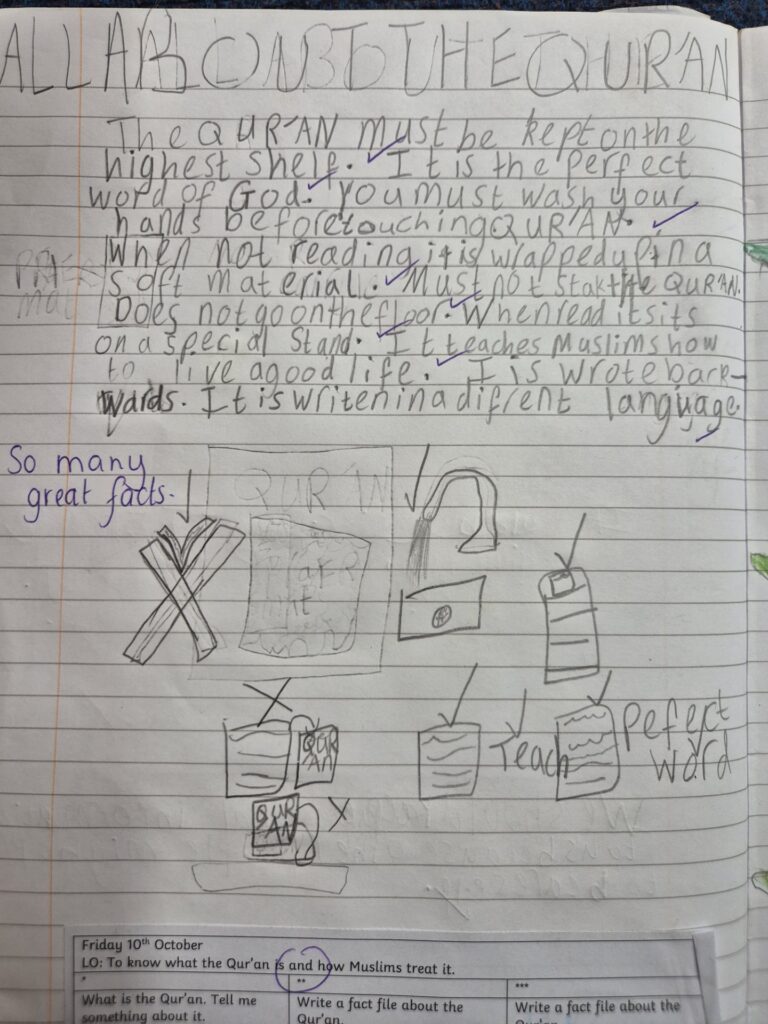 ALL ABOUT THE QUR'AN
The QUR'AN must be kept on the
highest shelf. It is the perfect
word of God. You must wash your
hands before touching QUR'AN.
When not reading it is wrapped up in a
soft material. Must not stak the QUR'AN.
Does not go on the floor. When read it sits
on a special stand. It teaches Muslims how
to live a good life. I is wrote back-
wards. It is writen in a difrent language.
So many
great facts.
QUR'AN
QUR
AN
Teach
Pefect
word
QUR
AN
Friday 10th October
LO: To know what the Qur'an is and how Muslims treat it.
* ** ***
What is the Qur'an. Tell me
something about it.
Write a fact file about the
Qur'an.
Write a fact file about the
Qur'an.